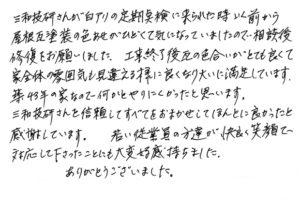 三和技研さんが白アリの定期点検に来られた時いく前から
屋根瓦塗装の色あせがひどくて気になっていましたので相談後
修復をお願いしました。工事終了後瓦の色合いがとても良くて
家全体の雰囲気も見違える様に良くなり大いに満足しています。
築43年の家なので何かとやりにくかったと思います。
三和技研さんを信頼してすべてをおまかせしてほんとに良かったと
感謝しています。 若い従業員の方達が快よく笑顔で
対応して下さったことにも大変好感持ちました。
ありがとうございました。